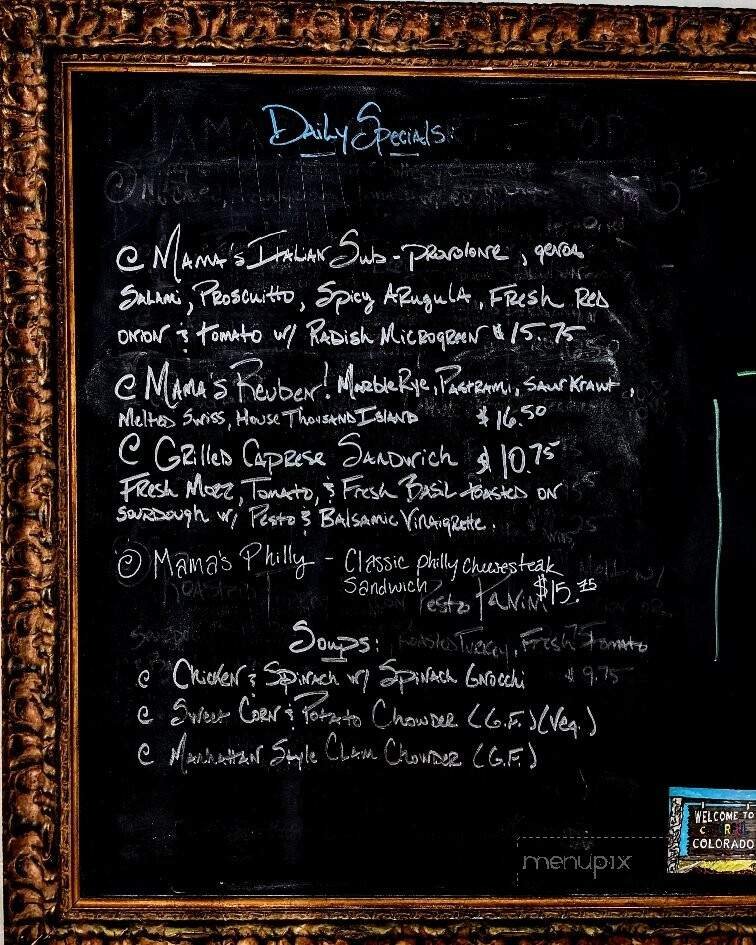 Daily Specials:
Mama's Italian Sub - Provolone, genoa
Salami, Proscuitto, Spicy Arugula, Fresh Red
onion & tomato w/ Radish Microgreen $15.75
Mama's Reuben! Marble Rye, Pastrami, Saurkraut,
Melted Swiss, House Thousand Island $16.50
Grilled Caprese Sandwich $10.75
Fresh Mozz, Tomato, & Fresh Basil toasted on
sourdough w/ Pesto & Balsamic Vinaigrette.
Mama's Philly - Classic philly cheesesteak
Sandwich $15.75
Pesto Panini
Soups: Roasted Turkey, Fresh Tomato
Chicken & Spinach w/ Spinach Gnocchi $9.75
Sweet Corn & Potato Chowder (G.F.)(Veg.)
Manhattan Style Clam Chowder (G.F.)
WELCOME TO
COLORADO
menupix